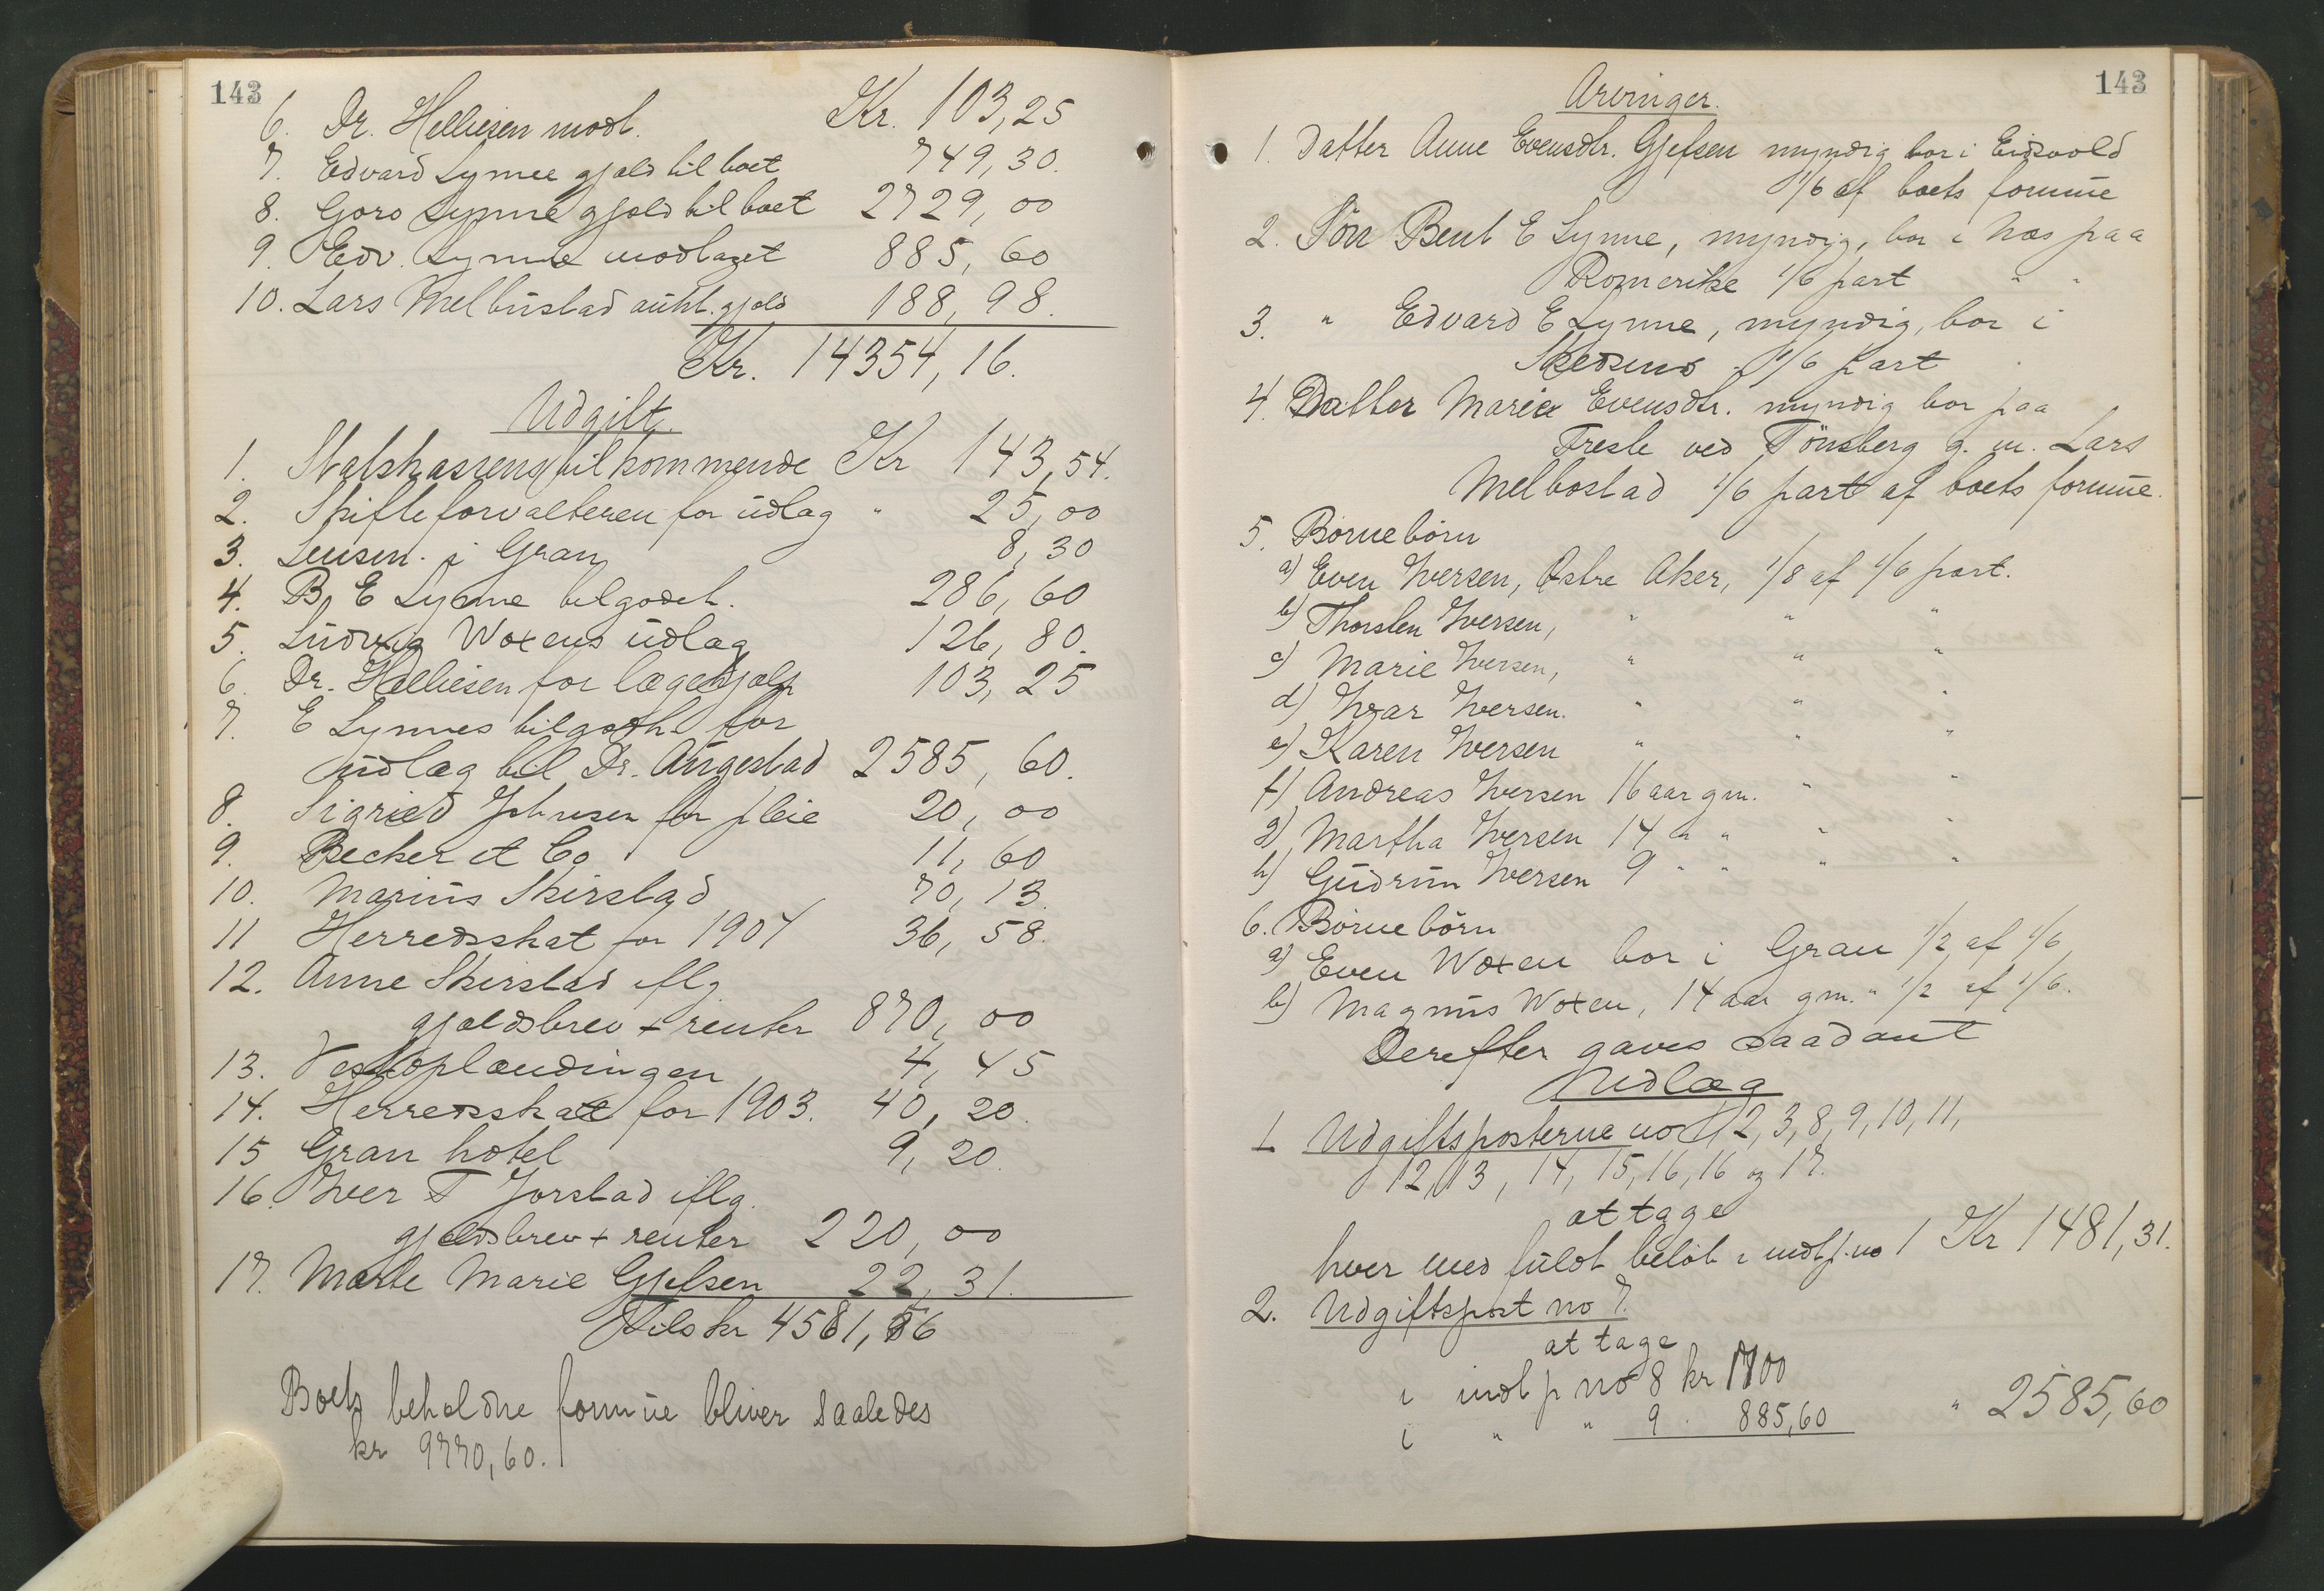 143
6. Dr. Helliesen modt. Kr. 103,25
7. Edvard Lynne gjæld til boet 749,30.
8. Goro Lynne gjæld til boet 2729,00
9. Edv. Lynne modtaget 885,60
10. Lars Melbustad aukt. gjæld 188,98.
Kr. 14354,16.
Udgift.
1. Statskassens tilkommende Kr 143,54.
2. Skifteforvalteren for udlag " 25,00
3. Lensm. i Gran 8,30
4. B. E Lynne tilgodeh. 286,60
5. Ludvig Woxens udlæg 126,80.
6. Dr. Helliesen for lægehjælp 103,25
7. E Lynnes tilgodh for
udlæg til Dr. Augestad 2585,60.
8. Sigried Johnsen for pleie 20,00
9. Becker et Co 11,60
10. Marius Skirstad 70,13.
11 Herredsskat for 1904 36,58.
12. Anne Skirstad iflg.
gjældsbrev + renter 870,00
13. Vestoplændingen 4,45
14. Herredsskat for 1903. 40,20.
15 Gran hotel 9,20.
16. Iver T Jorstad iflg.
gjeldsbrev + renter 220,00
17. Marte Marie Gjefsen 22,31.
Tils kr 4581,56
Boets beholdne formue bliver saaledes
kr 9770,60.
143
Arvinger.
1. Datter Anne Evensdtr. Gjefsen myndig bor i Eidsvold
1/6 af boets formue
2. Søn Bent E Lynne, myndig, bor i Næs paa
Romerike 1/6 part " "
3. " Edvard E Lynne, myndig, bor i
Skedsmo . 1/6 part
4. Datter Marie Evensdtr. myndig bor paa
Tresle ved Tönsberg g. m. Lars
Melbostad 1/6 part af boets formue.
5. Börnebörn
a) Even Iversen, Østre Aker, 1/8 af 1/6 part.
b) Thorsten Iversen, " " "
c) Marie Iversen, " " "
d) Ivar Iversen. " " "
e) Karen Iversen " " "
f) Andreas Iversen 16 aar gm. " "
g) Martha Iversen 14 " " " "
h) Gudrun Iversen 9 " " " "
6. Börnebörn
a) Even Woxen bor i Gran 1/2 af 1/6
b) Magnus Woxen, 14 aar gm. " 1/2 af 1/6.
Derefter gaves saadant
Udlæg
1 Udgiftsposterne no 1, 2, 3, 8, 9, 10, 11,
12, 13, 14, 15, 16, 16 og 17.
at tage
hver med fuldt beløb i indt.p. no 1 Kr 1481,31.
2. Udgiftspost no 7.
at tage
i indt p no 8 kr 1700
i " " 9 . 885,60 " 2585,60